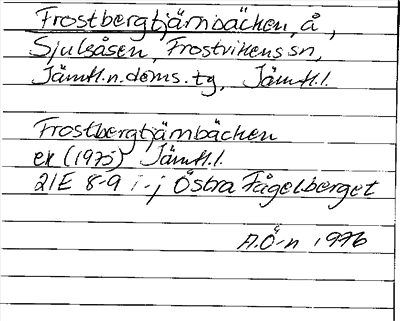 Frostbergtjärnbäcken, å,
Sjulsåsen, Frostvikens sn,
Jämtl.n.doms.tg, Jämtl.l.
Frostbergtjärnbäcken
ek (1975) Jämtl.l.
21E 8-9 i-j Östra Fågelberget
A.Ö-n 1976